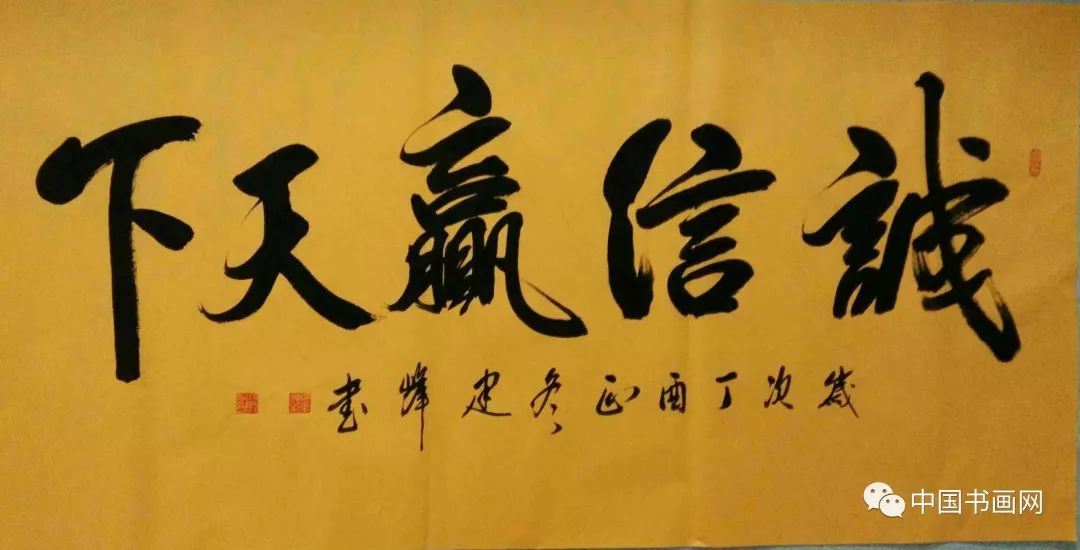 誠信贏天下
歲次丁酉正冬建書
中国书画网